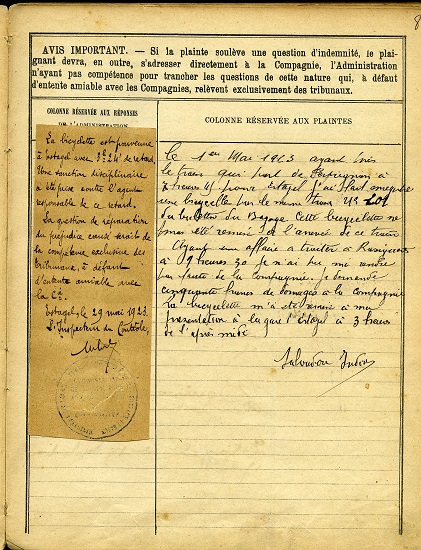 8
AVIS IMPORTANT. — Si la plainte soulève une question d'indemnité, le plai-
gnant devra, en outre, s'adresser directement à la Compagnie, l'Administration
n'ayant pas compétence pour trancher les questions de cette nature qui, à défaut
d'entente amiable avec les Compagnies, relèvent exclusivement des tribunaux.
COLONNE RÉSERVÉE AUX RÉPONSES
DE L'ADMINISTRATION
La bicyclette est parvenue
à Estagel avec de retard.
Une sanction disciplinaire
a été prise contre l'agent
responsable de ce retard.
La question de réparation
du préjudice causé serait de
la compétence exclusive des
tribunaux, à défaut
d'entente amiable avec
la Cie.
Estagel, le 29 mai 1923.
L'Inspecteur du Contrôle,
COLONNE RÉSERVÉE AUX PLAINTES
Le 1er Mai 1923 ayant pris
le train qui part de à
7 heures pour Estagel j'ai fait
une bicyclette sur le même train 201
du bulletin du Bagage Cette bicyclette ne
pas été remise à l'arrivée de ce train
Ayant une affaire a traiter à
à 9 heures 30 je n'ai pu me rendre
par faute de la Compagnie. Je demande
cinquante francs de domages à la Compagnie
la bicyclette m'a été remise à ma
présentation à la gare d'Estagel à 3 heures
de l'après midi
Salvador